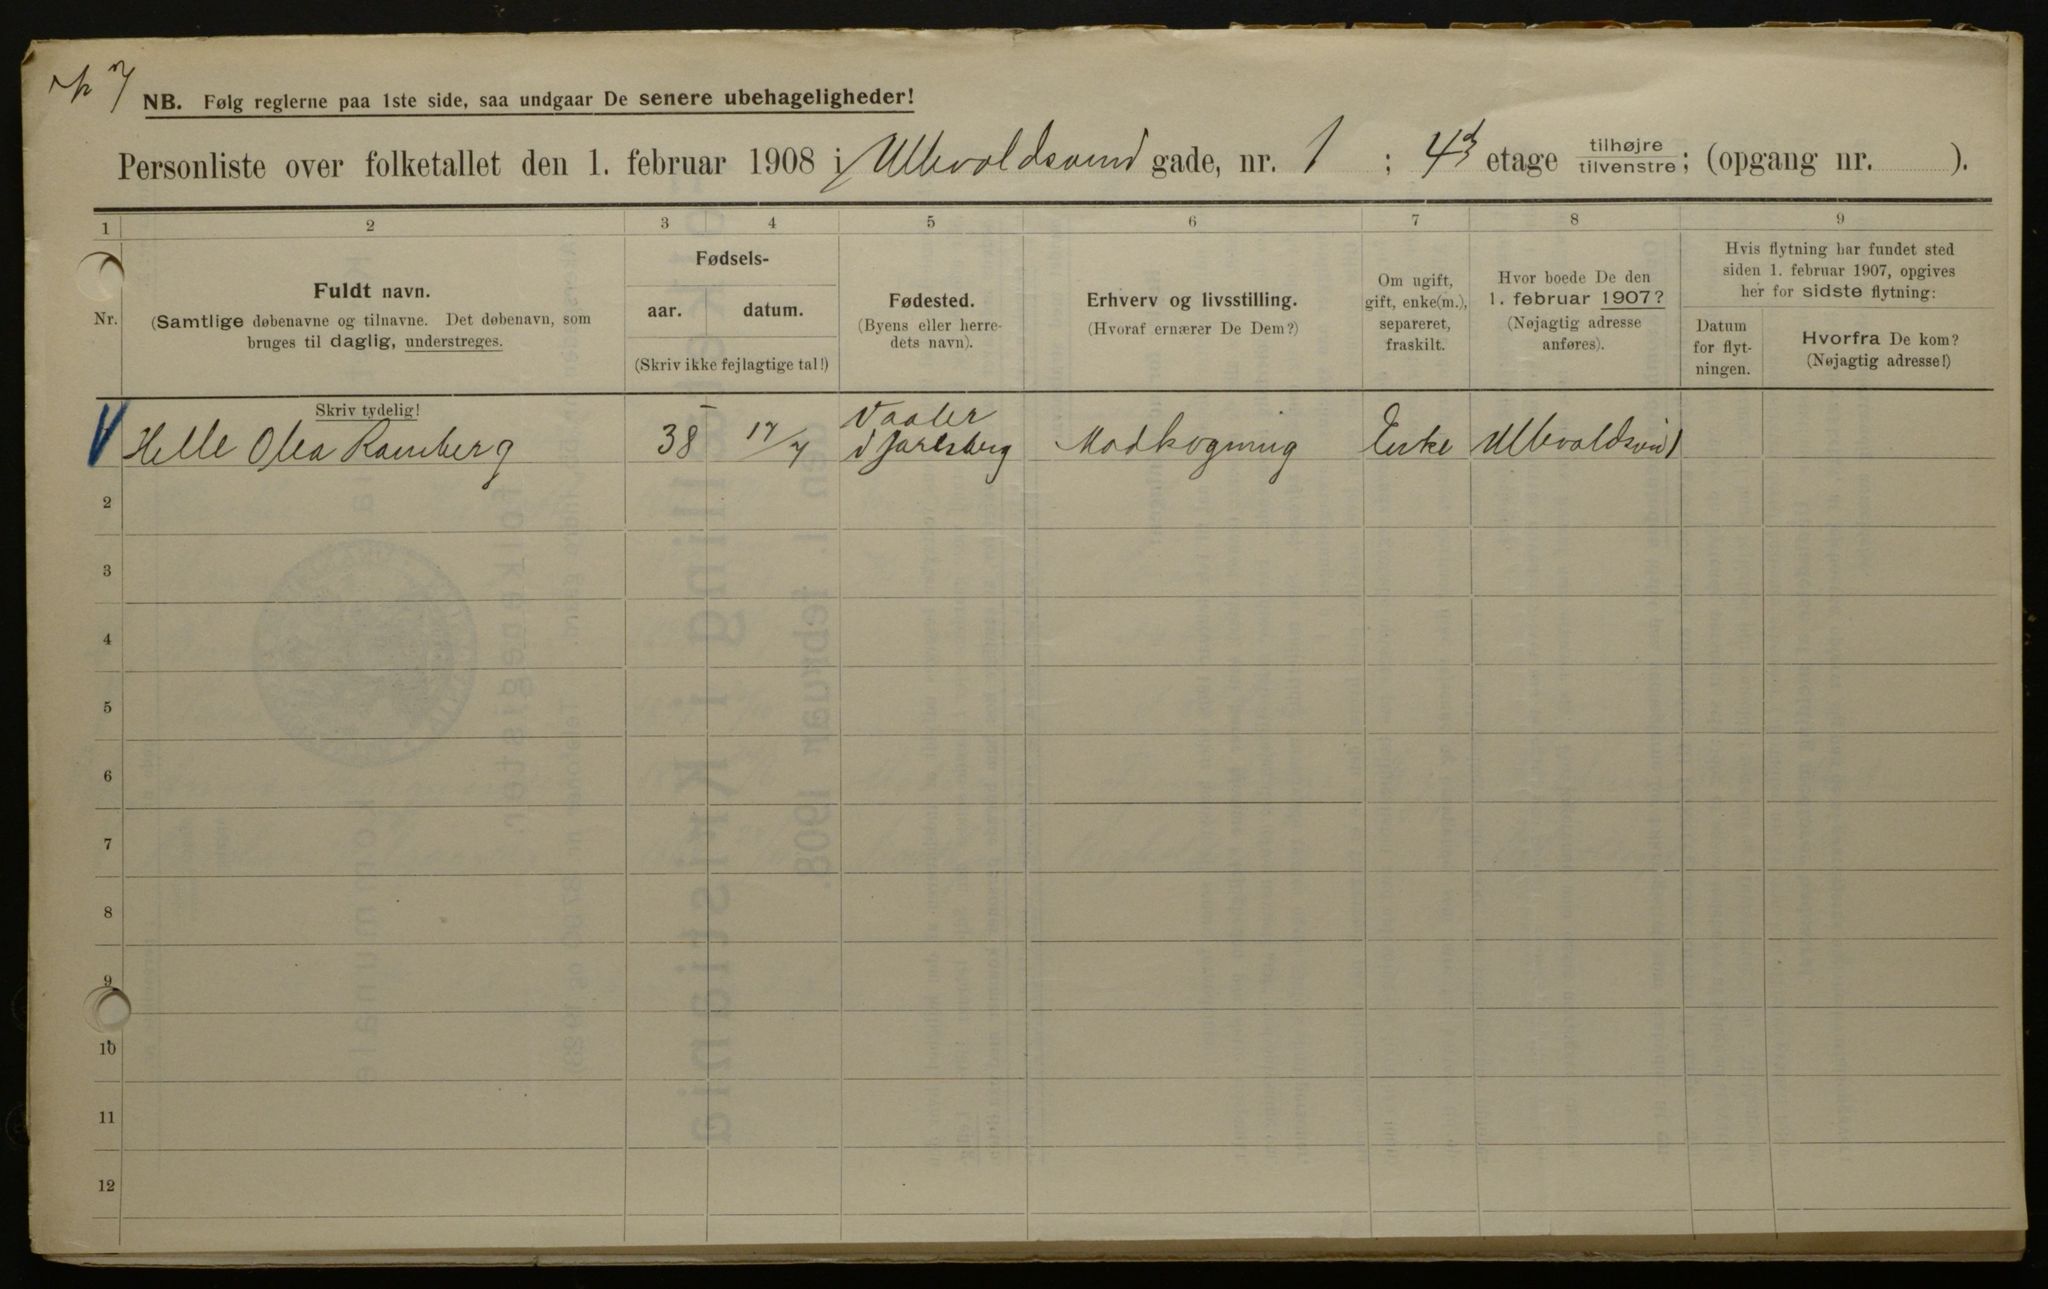 NB. Følg reglerne paa 1ste side, saa undgaar De senere ubehageligheder!
Personliste over folketallet den 1. februar 1908 i Ullevoldsveind gade, nr. 1 ; 4d etage tilhøjre tilvenstre; (opgang nr. ).
1 2 3 4 5 6 7 8 9
Nr.
Fuldt navn.
(Samtlige døbenavne og tilnavne. Det døbenavn, som
bruges til daglig, understreges.
Skriv tydelig!
Fødsels-
aar. datum.
(Skriv ikke fejlagtige tal!)
Fødested.
(Byens eller herre-
dets navn).
Erhverv og livsstilling.
(Hvoraf ernærer De Dem?)
Om ugift,
gift, enke(m.),
separeret,
fraskilt.
Hvor boede De den
1. februar 1907?
(Nøjagtig adresse
anføres).
Hvis flytning har fundet sted
siden 1. februar 1907, opgives
her for sidste flytning:
Datum
for flyt-
ningen.
Hvorfra De kom?
(Nøjagtig adresse!)
Helle Olea Ramberg 38 17/7 Vaaler
i Jarlsberg Madkogning Enke Ullevoldsvei 1
2
3
4
5
6
7
8
9
10
11
12